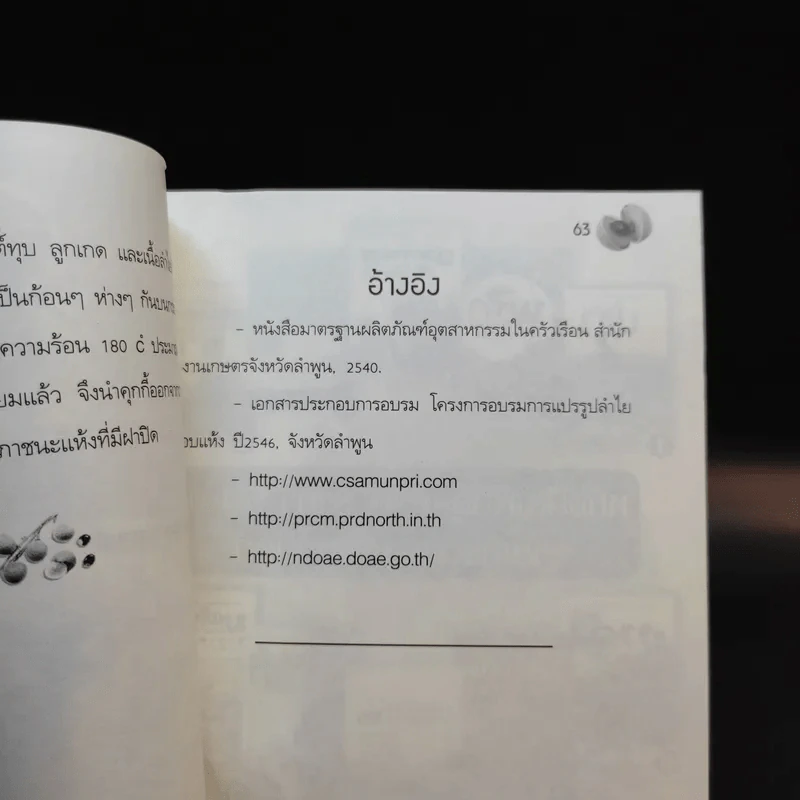 ทุบ ลูกเกด และเนื้อลำไย
เป็นก้อนๆ ห่างๆ กันบน
ความร้อน 180 c ํ
แล้ว จึงนำคุกกี้ออกจาก
ภาชนะแห้งที่มีฝาปิด
63
อ้างอิง
- หนังสือมาตรฐานผลิตภัณฑ์อุตสาหกรรมในครัวเรือน สำนัก
งานเกษตรจังหวัดลำพูน, 2540.
- เอกสารประกอบการอบรม โครงการอบรมการแปรรูปลำไย
อบแห้ง ปี2546, จังหวัดลำพูน
- http://www.csamunpri.com
- http://prcm.prdnorth.in.th
- http://ndoae.doae.go.th/